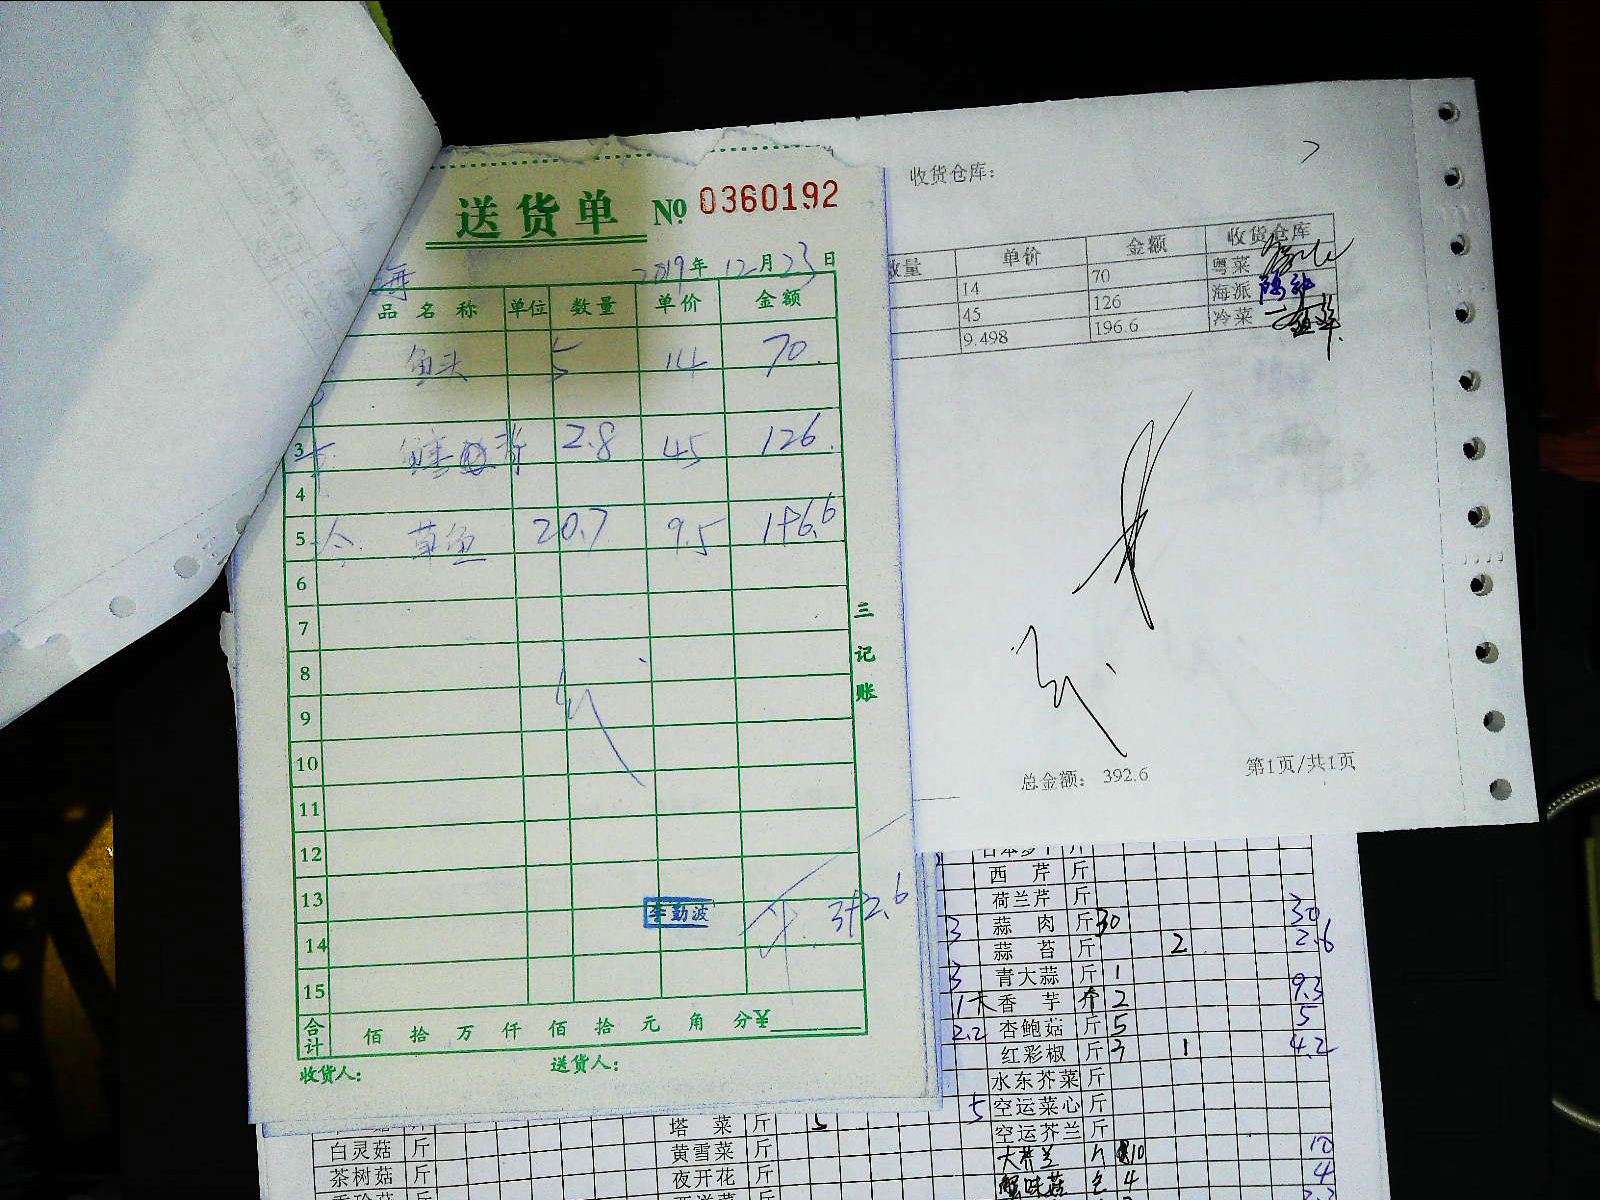 送货单 № 0360192
海 2019年12月23日
品名称 单位 数量 单价 金额
鱼头 5 14 70.
3 2.8 45 126.
4
5 冷 草鱼 20.7 9.5 196.6
6
7
8
9
10
11
12
13
李勤波
392.6
14
15
合计 佰 拾 万 仟 佰 拾 元 角 分 ¥
收货人： 送货人：
三记账
收货仓库：
数量 单价 金额 收货仓库
14 70 粤菜
45 126 海派
9.498 196.6 冷菜
总金额： 392.6 第1页/共1页
西芹 斤
荷兰芹 斤
3 蒜肉 斤 30 30
蒜苔 斤 2 2.6
3 青大蒜 斤 1
香芋 个 2 9.3
2.2 杏鲍菇 斤 5 5
红彩椒 斤 3 1 4.2
水东芥菜 斤
5 空运菜心 斤
空运芥兰 斤
大芥兰 10
蟹味菇 包 4 4
塔菜 斤 5
白灵菇 斤 黄雪菜 斤
茶树菇 斤 夜开花 斤